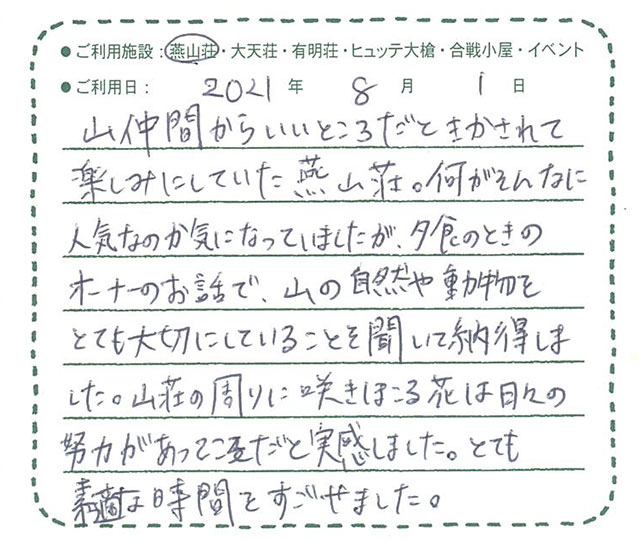 ● ご利用施設：燕山荘・大天荘・有明荘・ヒュッテ大槍・合戦小屋・イベント
● ご利用日： 2021 年 8 月 1 日
山仲間からいいところだときかされて
楽しみにしていた燕山荘。何がそんなに
人気なのか気になってしましたが、夕食のときの
オーナーのお話で、山の自然や動物を
とても大切にしていることを聞いて納得しま
した。山荘の周りに咲きほこる花は日々の
努力があってこそだと実感しました。とても
素適な時間をすごせました。